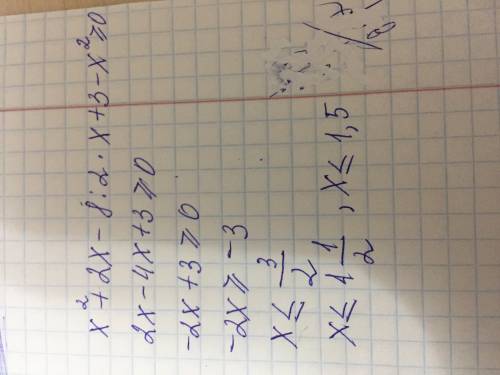 x² + 2x - 8 : 2 · x + 3 - x² ⩾ 0
2x - 4x + 3 ⩾ 0
-2x + 3 ⩾ 0
-2x ⩾ -3
x ≤ 3/2
x ≤ 1 1/2, x ≤ 1,5